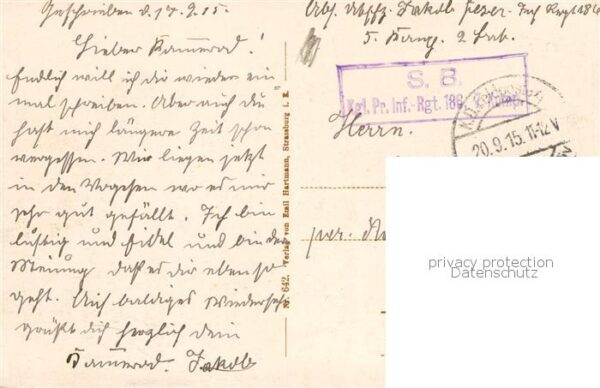 Geschrieben d. 17.9.15.
Lieber Kamerad!
Endlich will ich dir wieder ein
mal schreiben. Aber auch du
hast mich längere Zeit schon
vergessen. Wir liegen jetzt
in den Vogesen wo es mir
sehr gut gefällt. Ich bin
lustig und fidel und bin der
Meinung daß es dir eben so
geht. Auf baldiges Wiedersehn
grüßt dich herzlich dein
Kamerad. Jakob
Nr. 642. Verlag von Emil Hartmann, Strassburg i. E.
Abs. Jakob
5. Komp. 2 Bat.
S. B.
Kgl. Pr. Inf.-Rgt. 186, Komp.
20.9.15. 11-12V
Herrn.
per.
privacy protection
Datenschutz